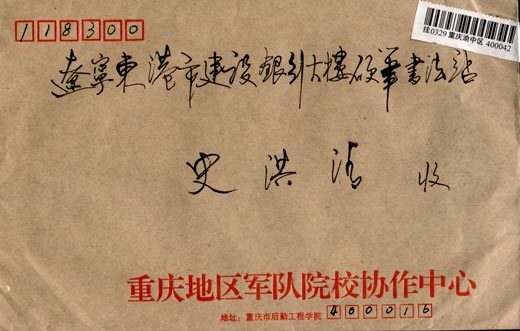 118300
挂0329 重庆渝中区 400042
遼寧東港市建设銀行大樓硬筆書法站
史洪清 收
重庆地区军队院校协作中心
地址：重庆市后勤工程学院 400016